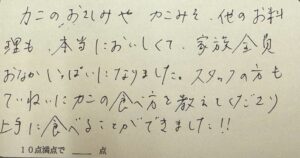 カニのおさしみや カニみそ、他のお料
理も、本当においしくて、家族全員
おなかいっぱいになりました。スタッフの方も
ていねいにカニの食べ方を教えてくださり
上手に食べることができました!!
10点満点で 点